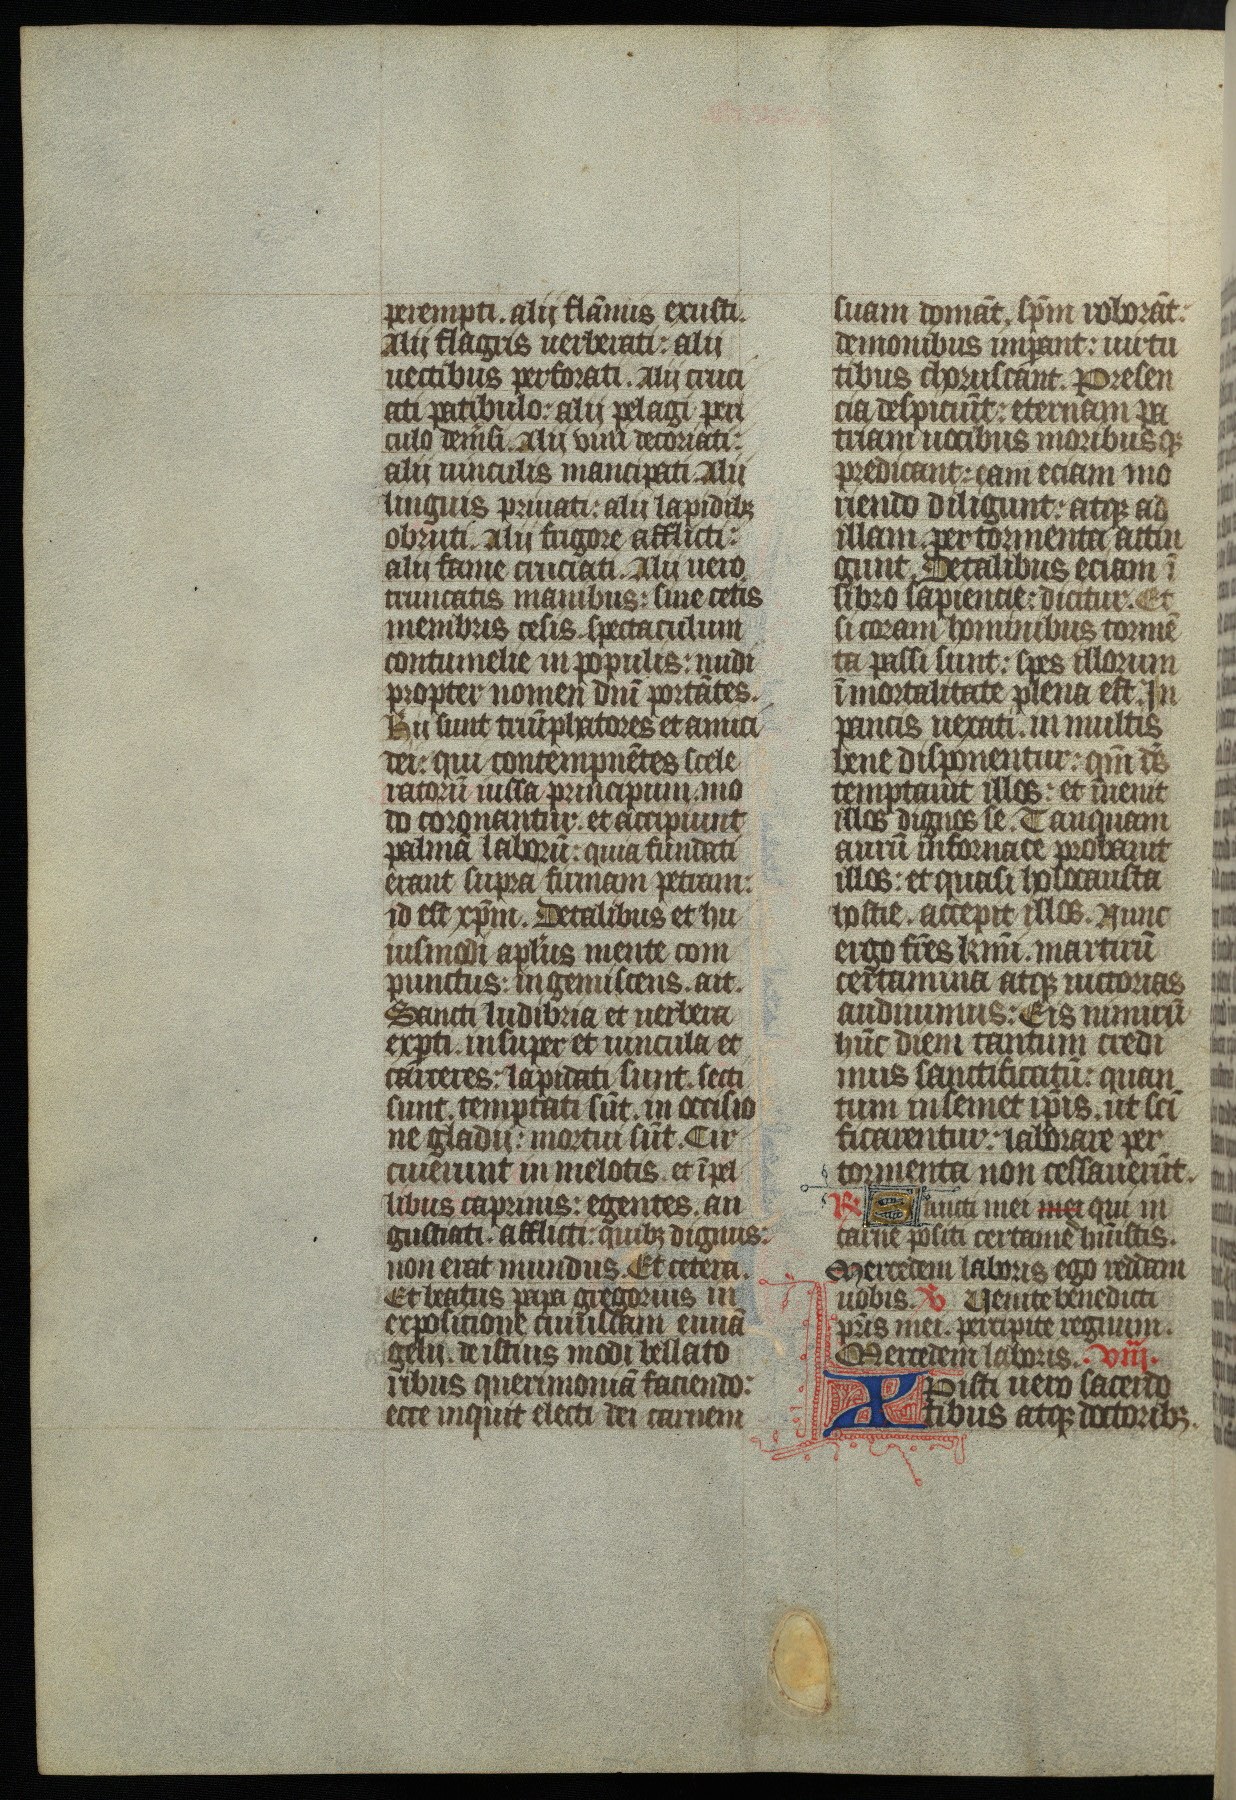 perempti. alij flāmis exusti.
Alij flagris uerberati: alij
uectibus perforati. Alij cruci
ati patibulo: alij pelagi peri
culo demsi. Alij viui decoriati:
alij uinculis mancipati. Alij
linguis priuati: alij lapidibꝫ
obruti. Alij frigore afflicti:
alij fame cruciati. Alij uero
truncatis manibus: siue cetis
membris cesis. spectaculum
contumelie in populis: nudi
propter nomen dnī portātes.
Hij sunt triūphatores et amici
dei: qui contempnētes scele
ratorū iussa principum. mo
do coronantur. et accipiunt
palmā laborū: quia fundati
erant supra firmam petram:
id est xp̄m. De talibus et hu
iusmodi aplūs mente com
punctus: ingemiscens. ait.
Sancti ludibria et uerbera
experti. insuper et uincula et
carceres: lapidati sunt. secti
sunt. temptati sūt. in occisio
ne gladij: mortui sūt. Cir
cuierunt in melotis. et ī pel
libus caprinis: egentes. an
gustiati. afflicti: quibꝫ dignus:
non erat mundus. Et cetera.
Et beatus papa gregorius in
expositione cuiusdam euuā
gelij. de istius modi bellato
ribus querimoniā faciendo:
ecce inquit electi dei carnem
suam domāt. sp̄m roborāt:
demonibus imp̄ant: uirtu
tibus choruscant. Presen
cia despiciūt: eternam pa
triam uocibus moribusqꝫ
predicant: eam eciam mo
riendo diligunt: atqꝫ ad
illam. per tormenta attin
gunt. De talibus eciam ī
libro sapiencie: dicitur. Et
si coram hominibus tormē
ta passi sunt: spes illorum
īmortalitate plena est. In
paucis uexati. in multis
bene disponentur: qm̄ dē
temptauit illos: et īuenit
illos dignos se. Tanquam
aurū in fornace probauit
illos: et quasi holocausta
hostie. accepit illos. Nunc
ergo fr̄es kmī. martirū
certamina atqꝫ uictorias
audiuimus: Eis nimirū
hūc diem tantum credi
mus sanctificatū: quan
tum in semet ip̄is. ut scī
ficarentur: laborare per
tormenta non cessauerūt.
R Sancti mei mei qui in
carne positi certamē hūistis.
Mercedem laboris ego reddam
uobis. V Uenite benedicti
pr̄is mei. percipite regnum.
Mercedem laboris. viij.
XPisti uero sacerdo
tibus atqꝫ doctoribꝫ.